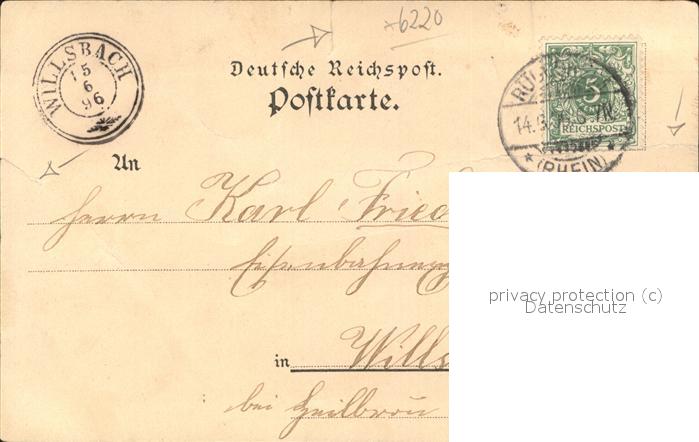 *6220
WILLSBACH
15
6
96
Deutsche Reichspost.
Postkarte.
5
REICHSPOST
14.
7N.
(RHEIN)
An
Herrn Karl Fried
in Wills
bei Heilbron
privacy protection (c)
Datenschutz